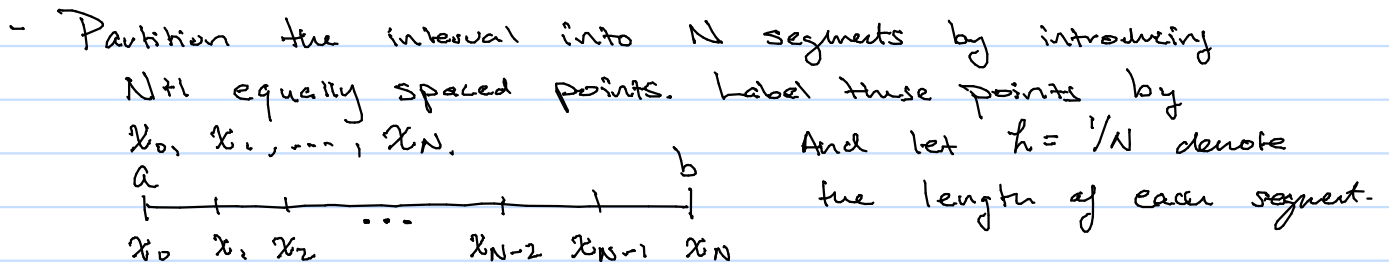 - Partition the interval into N segments by introducing
N+1 equally spaced points. Label these points by
x₀, x₁, ..., x_N. And let h = 1/N denote
a b the length of each segment.
...
x₀ x₁ x₂ x_{N-2} x_{N-1} x_N